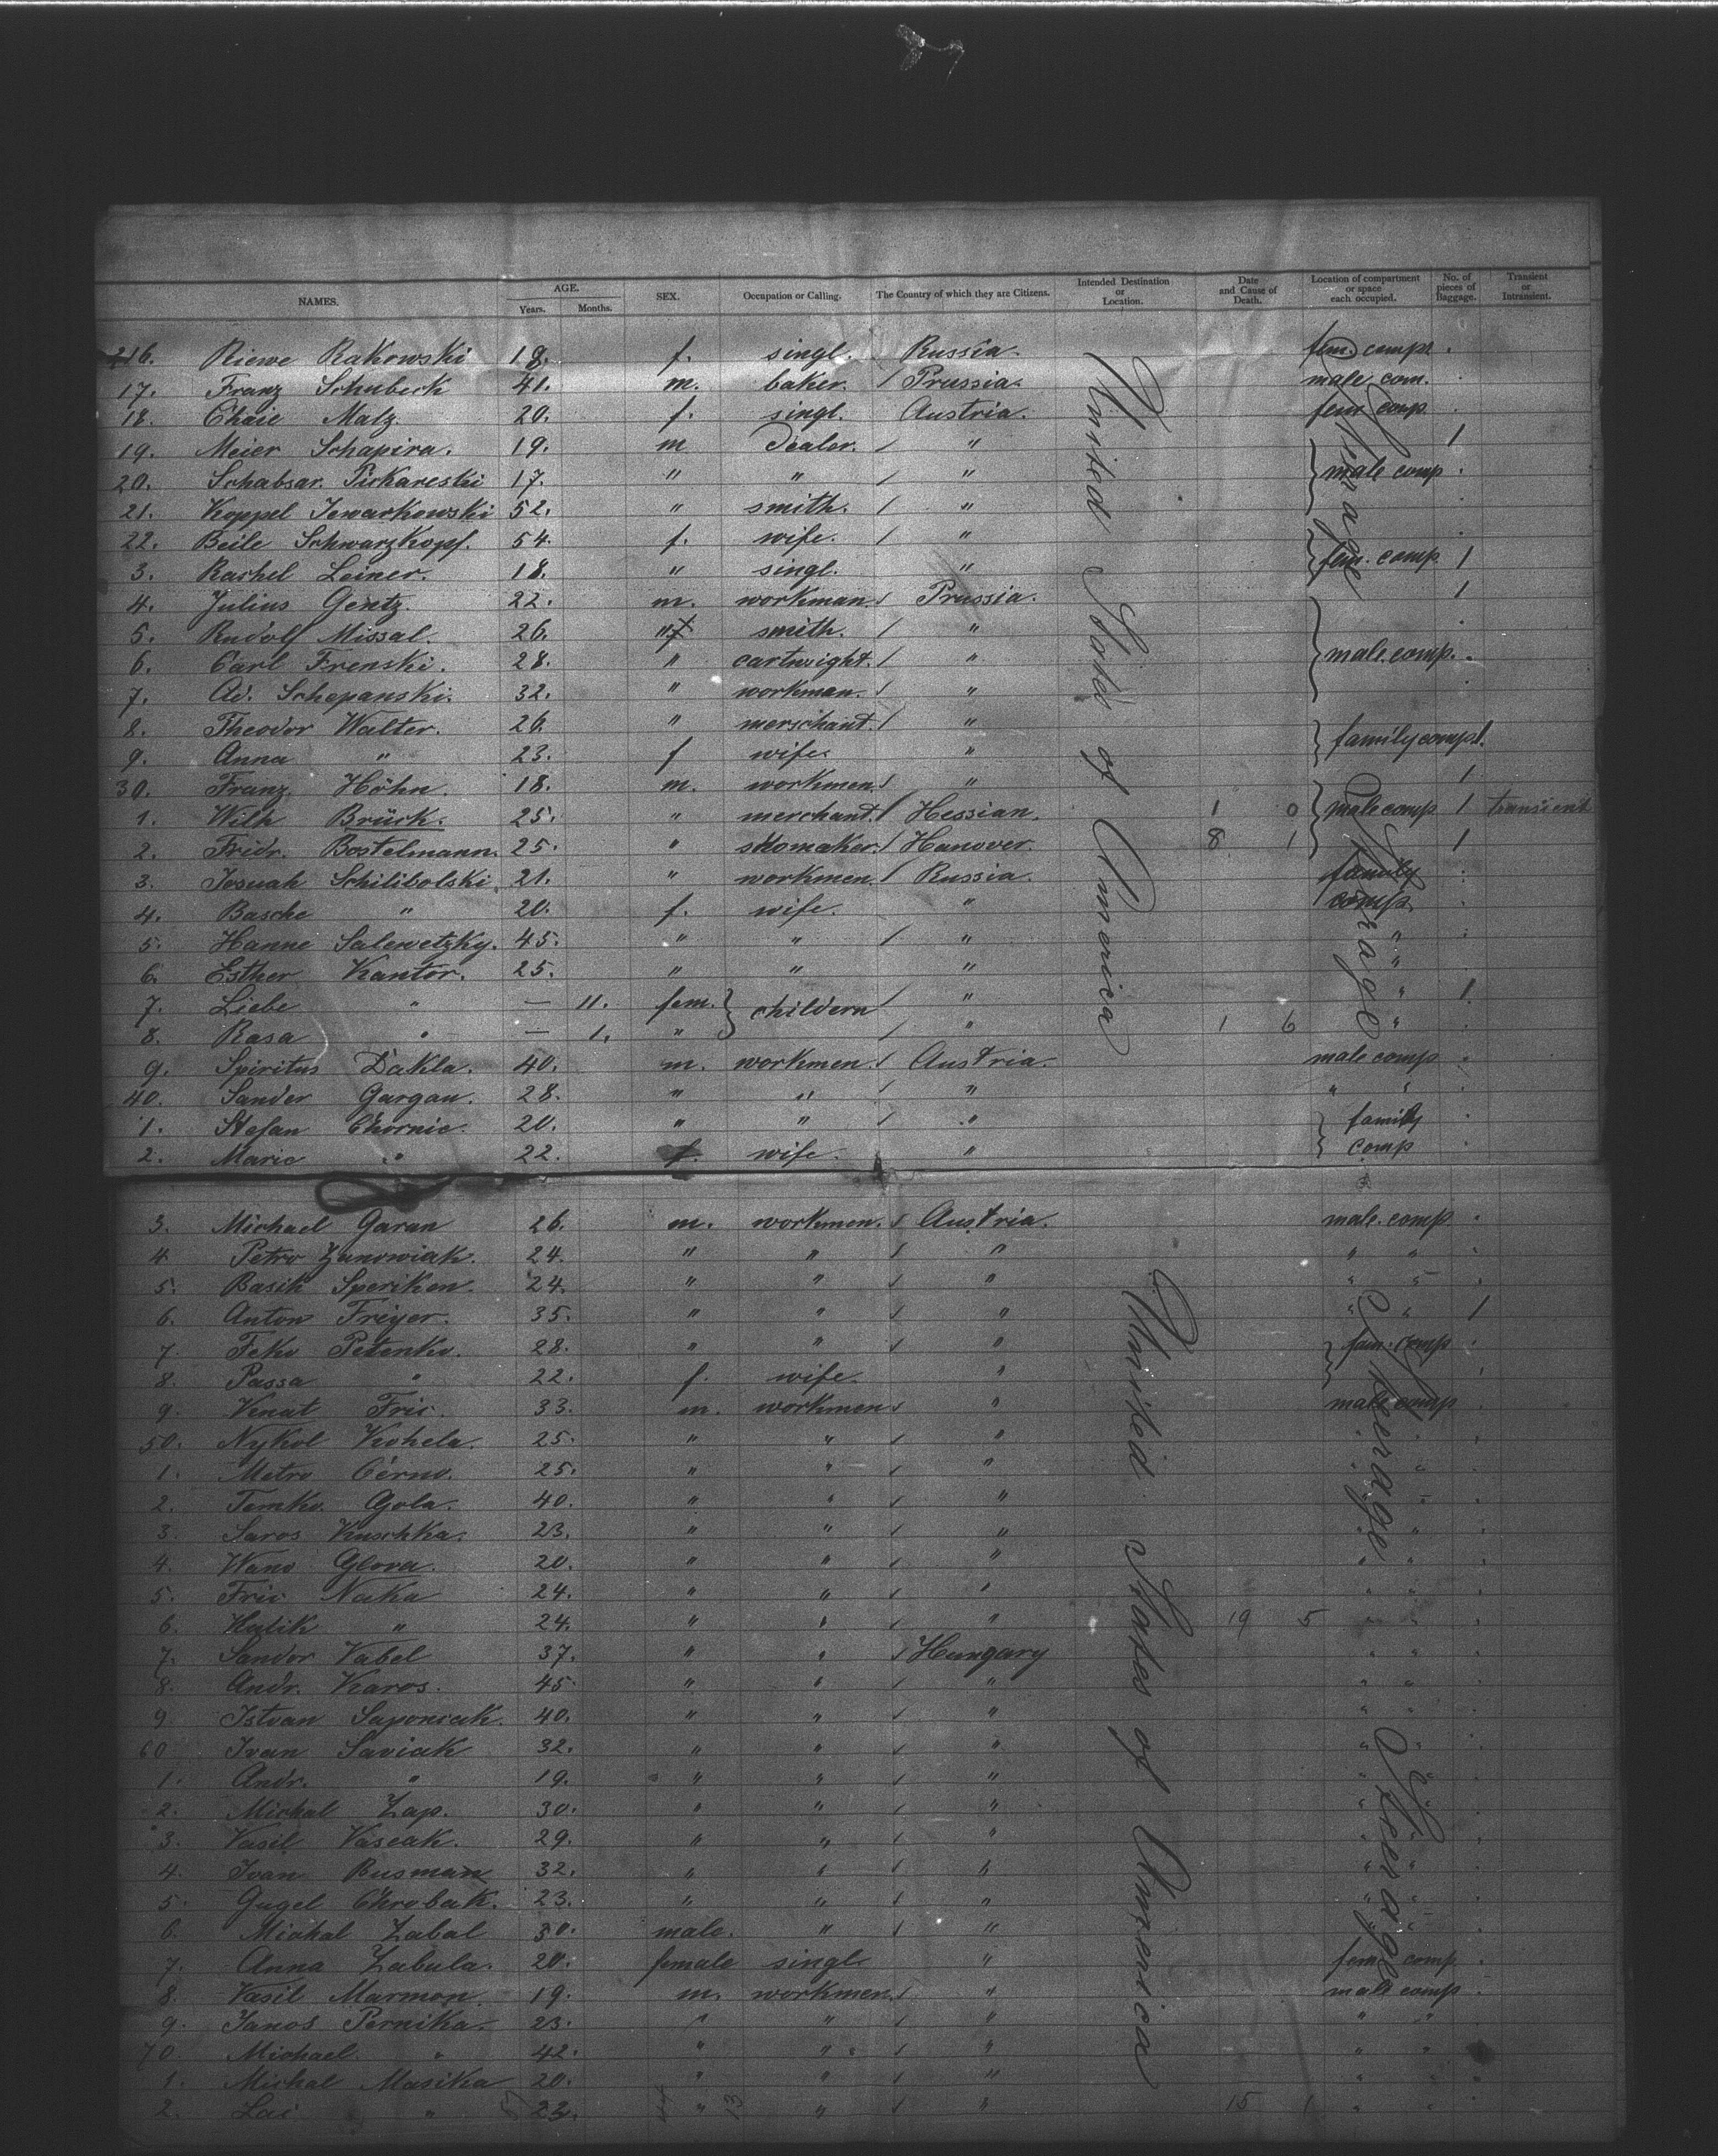 NAMES. AGE. Years. Months. SEX. Occupation or Calling. The Country of which they are Citizens. Intended Destination or Location. Date and Cause of Death. Location of compartment or space each occupied. No. of pieces of Baggage. Transient or Intransient.
216. Riewe Rakowski 18. f. singl. Russia. fem. comps.
17. Franz Schubeck 41. m. baker. / Prussia. male com.
18. Chaie Malz. 20. f. singl. Austria. fem comp
19. Meier Schapira. 19. m Dealer. / " 1
20. Schabsar. Pickareski 17. " " / " male comp
21. Koppel Iewarkowski 52. " smith. / "
22. Beile Schwarzkopf. 54. f. wife. / "
3. Rachel Leiner. 18. " singl. " fem. comp 1
4. Julius Gentz. 22. m. workman. / Prussia. 1
5. Rudolf Missal. 26. " smith. / "
6. Carl Frenski. 28. " cartwright. / " male. comp.
7. Ad. Schepanski. 32. " workman. / "
8. Theodor Walter. 26 " merschant. / "
9. Anna " 23. f wife. " family comp. 1.
30. Franz Höhn. 18. m. workmen. / " 1
1. Wilh Brück. 25. " merchant. / Hessian. 1 0 male comp 1 transient
2. Fridr. Bostelmann. 25. " shomaker. / Hanover. 8 1 1
3. Iosuah Schilibolski. 21. " workmen. / Russia. family
4. Basche " 20. f. wife. " comp.
5. Hanne Salewetzky. 45. " " / " "
6. Esther Kantor. 25. " " " "
7. Liebe " — 11. fem. childern / " " 1
8. Rasa " — 1. " / " 1 6 "
9. Spiritus Dakla. 40. m. workmen. / Austria. male comp
40. Sander Gargan. 28. " " / " " "
1. Stefan Chornic. 20. " " / " family
2. Marie " 22. f. wife. " comp
United States of America
Steerage
Steerage
3. Michael Garan 26. m. workmen. / Austria. male. comp
4. Petro Zunowiak. 24. " " / " " "
5. Basik Speriken. 24. " " / " " "
6. Anton Freyer. 35. " " / " " " 1
7. Feko Petenko. 28. " " / " fam. comp
8. Passa " 22. f. wife. "
9. Venat Fric. 33. m. workmen / " male comp
50. Nykol Kohela. 25. " " / "
1. Metro Cerno. 25. " " / "
2. Temko. Gola. 40. " " / "
3. Saros Kuschka. 23. " " / " "
4. Wano Glova. 20. " " / " " "
5. Fric Naka 24. " " / " " "
6. Hulik " 24. " " / " 19 5 " "
7. Sandor Vabel 37. " " / Hungary " "
8. Andr. Karos. 45. " " / " " "
9 Istvan Saponcak. 40. " " / " " "
60 Ivan Saviak 32. " " / " " "
1. Andr. " 19. " " / " " "
2. Michal Zap. 30. " " / " " "
3. Vasil Vascak. 29. " " / " " "
4. Ivan Rusman 32. " " / " " "
5. Gugel Chrobak. 23. " " / " " "
6. Michal Zabal 30. male. " / " " "
7. Anna Zabula. 20. female singl. " fem. comp.
8. Vasil Marmon. 19. m. workmen. / " male comp
9. Janos Pernika. 23. " " / " " "
70 Michael. " 42. " " / " " "
1. Michal Masika 20. " " / " " "
2. Lai " 23. " " / " 15 1 " "
United States of America
Steerage
Steerage